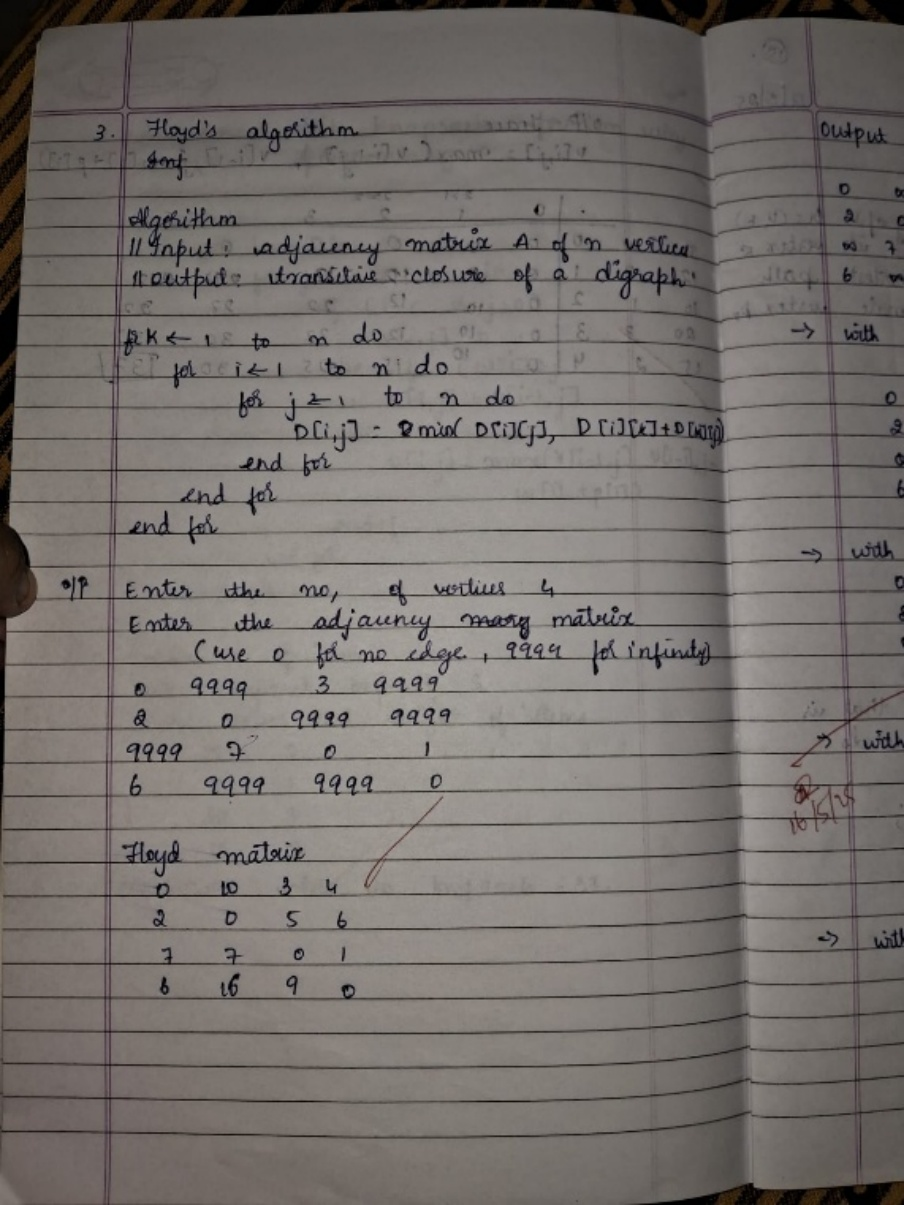 3. Floyd's algorithm
Algorithm
// Input: adjacency matrix A of n vertices
// output: transitive closure of a digraph
for K ← 1 to n do
for i ← 1 to n do
for j ← 1 to n do
D[i,j] = min( D[i][j], D[i][k]+D[k][j])
end for
end for
end for
o/p Enter the no, of vertices 4
Enter the adjacency matrix
(use 0 for no edge, 9999 for infinity)
0 9999 3 9999
2 0 9999 9999
9999 7 0 1
6 9999 9999 0
Floyd matrix
0 10 3 4
2 0 5 6
7 7 0 1
6 16 9 0
Output
0
2
∞ 7
6
→ with
0
2
6
→ with
→ with
16/5/25
→ with